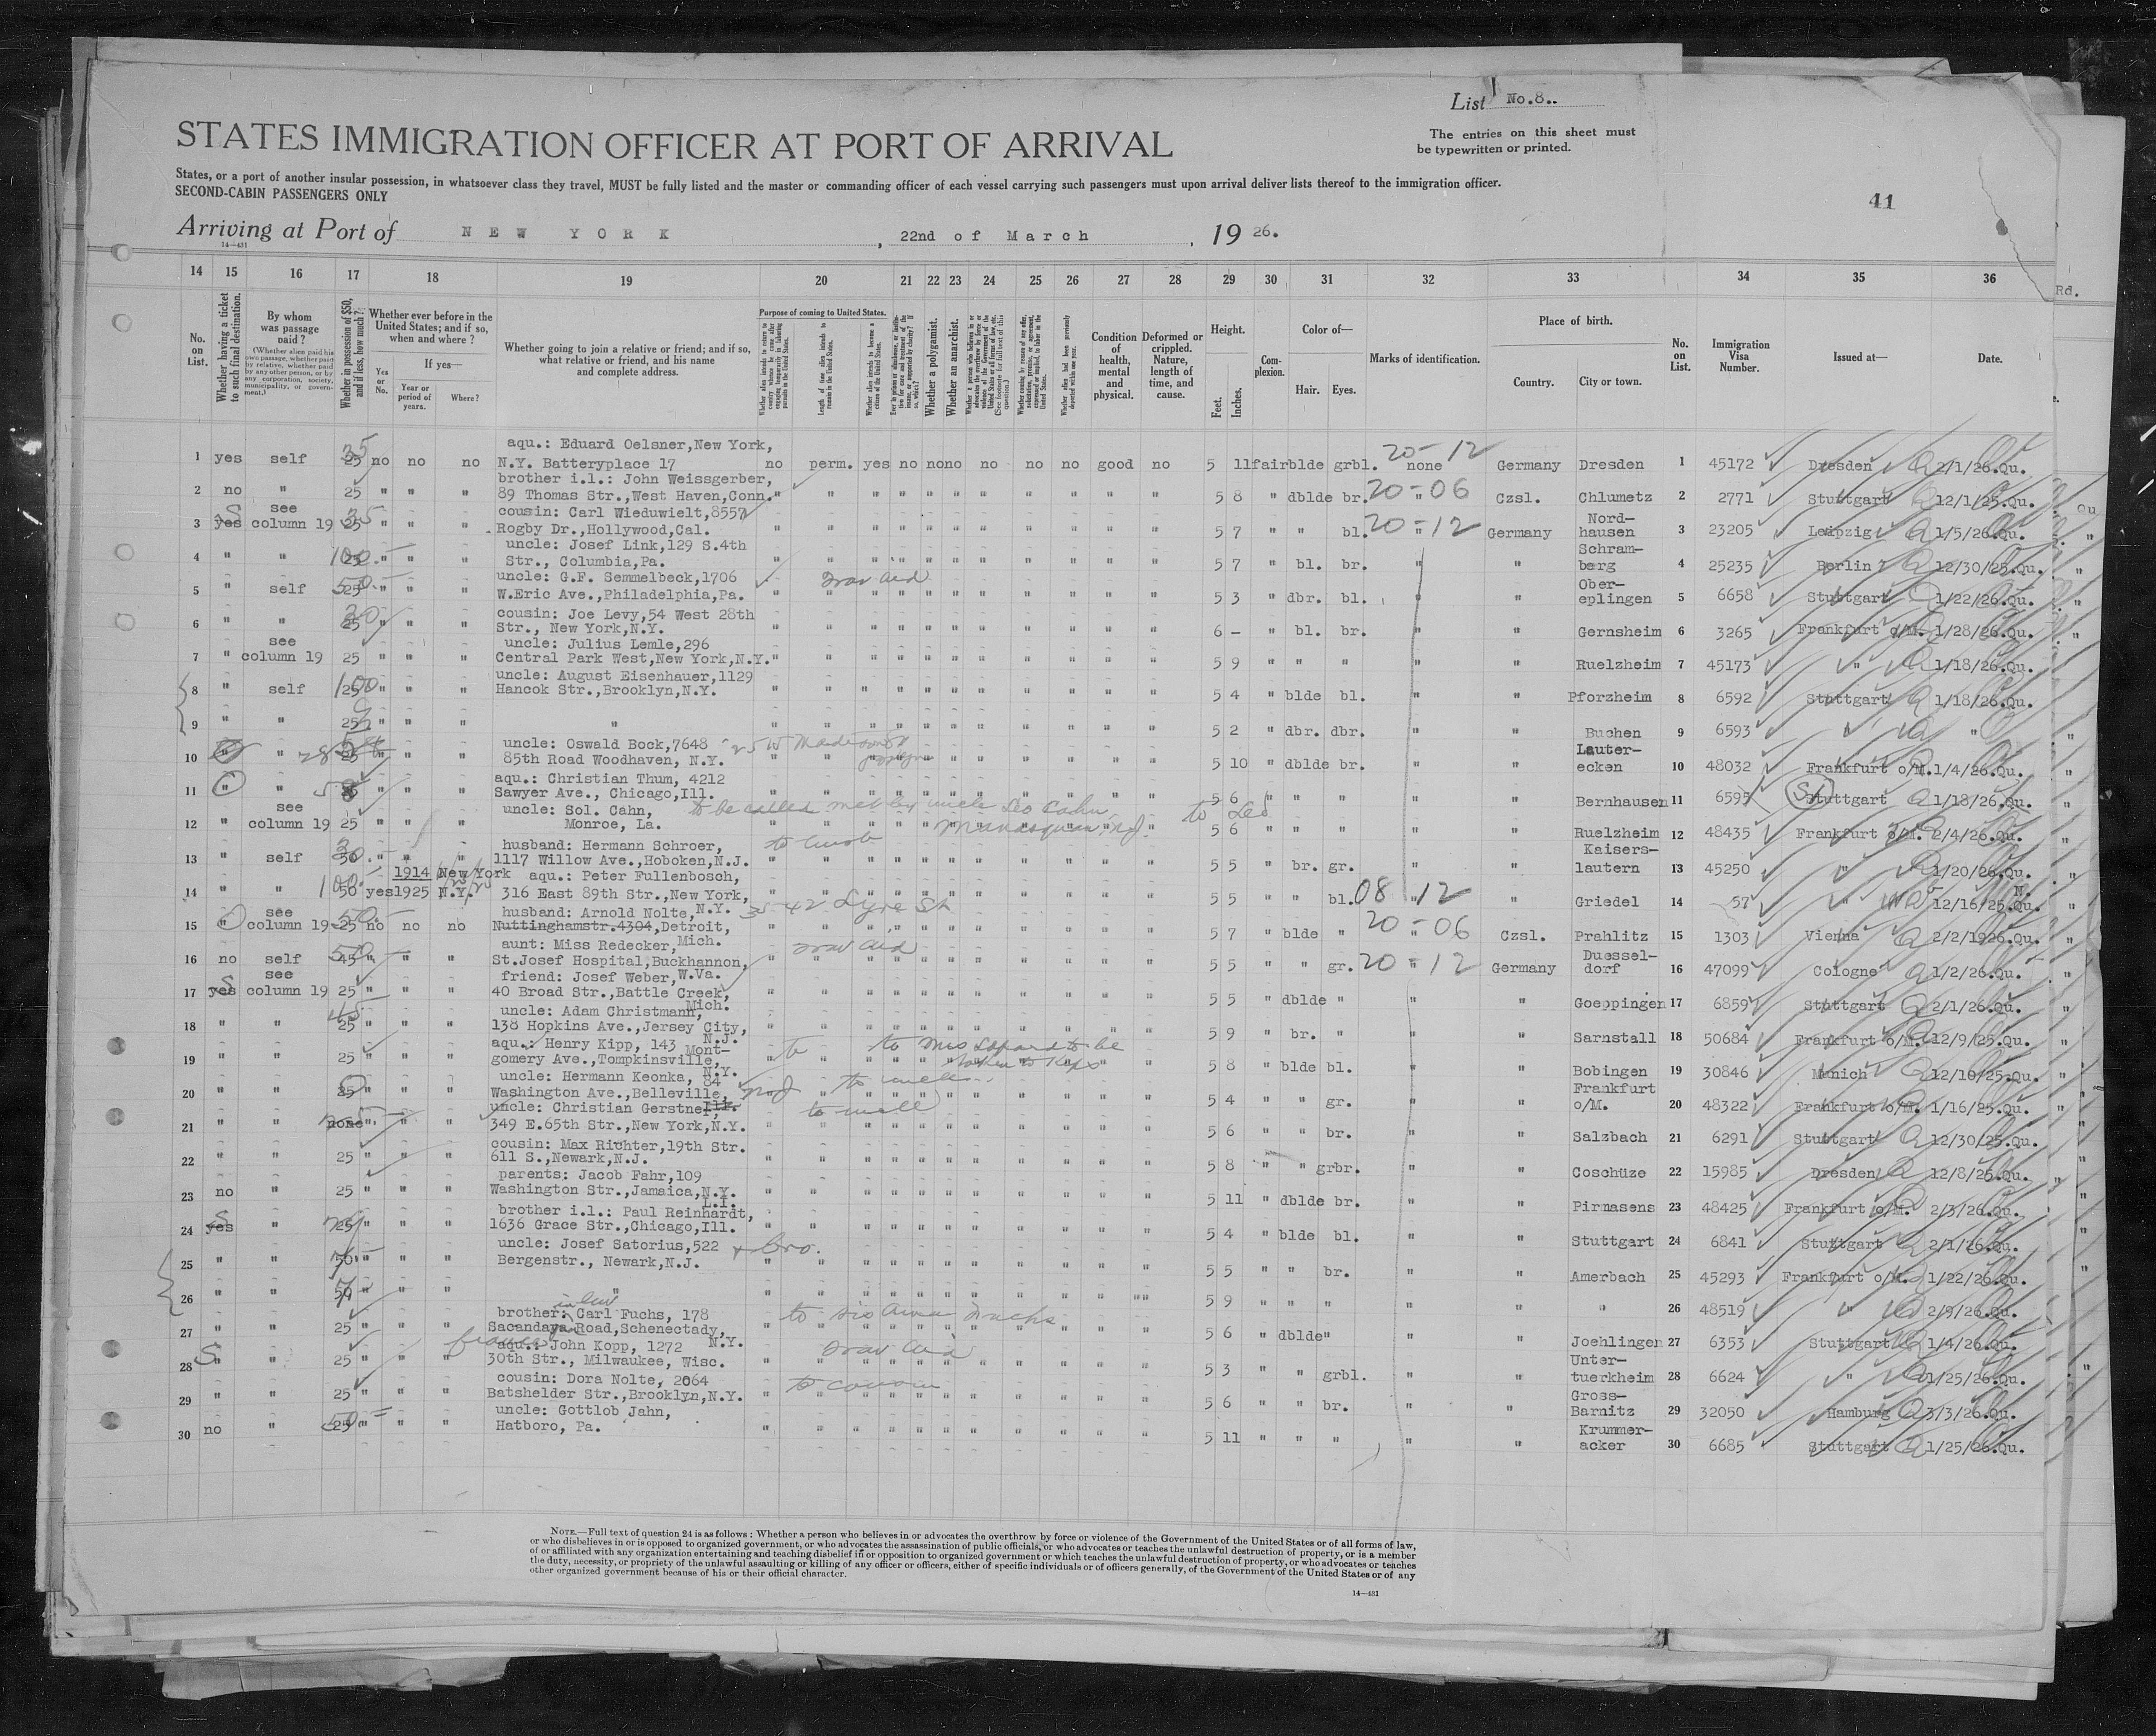 List No.8..
The entries on this sheet must
be typewritten or printed.
STATES IMMIGRATION OFFICER AT PORT OF ARRIVAL
States, or a port of another insular possession, in whatsoever class they travel, MUST be fully listed and the master or commanding officer of each vessel carrying such passengers must upon arrival deliver lists thereof to the immigration officer.
SECOND-CABIN PASSENGERS ONLY
41
Arriving at Port of NEW YORK, 22nd of March, 19 26.
14—431
14 15 16 17 18 19 20 21 22 23 24 25 26 27 28 29 30 31 32 33 34 35 36
No. on List.
Whether having a ticket to such final destination.
By whom was passage paid?
(Whether alien paid his own passage, whether paid by relative, whether paid by any other person, or by any corporation, society, municipality, or government.)
Whether in possession of $50, and if less, how much?
Whether ever before in the United States; and if so, when and where?
Yes or No.
If yes—
Year or period of years.
Where?
Whether going to join a relative or friend; and if so, what relative or friend, and his name and complete address.
Purpose of coming to United States.
Length of time alien intends to remain in the United States.
Whether alien intends to become a citizen of the United States.
Whether a polygamist.
Whether an anarchist.
Condition of health, mental and physical.
Deformed or crippled. Nature, length of time, and cause.
Height.
Feet. Inches.
Complexion.
Color of—
Hair. Eyes.
Marks of identification.
Place of birth.
Country. City or town.
No. on List.
Immigration Visa Number.
Issued at—
Date.
1 yes self 25 35 no no no aqu.: Eduard Oelsner,New York,
N.Y. Batteryplace 17 no perm. yes no no no no no no good no 5 11 fair blde grbl. none 20-12 Germany Dresden 1 45172 Dresden 2/1/26.Qu.
2 no " 25 " " " brother i.l.: John Weissgerber,
89 Thomas Str.,West Haven,Conn. " " " 5 8 " dblde br. 20-06 Czsl. Chlumetz 2 2771 Stuttgart 12/1/25.Qu.
3 yes see column 19 25 35 " " " cousin: Carl Wieduwielt,8557
Rogby Dr.,Hollywood,Cal. " " " 5 7 " " bl. 20-12 Germany Nord-
hausen 3 23205 Leipzig 1/5/26.Qu.
4 " " 25 100.- " " " uncle: Josef Link,129 S.4th
Str., Columbia,Pa. " " " 5 7 " bl. br. " " Schram-
berg 4 25235 Berlin 12/30/25.Qu.
5 " self 25 50.- " " " uncle: G.F. Semmelbeck,1706
W.Eric Ave.,Philadelphia,Pa. Trav aid " " " 5 3 " dbr. bl. " " Ober-
eplingen 5 6658 Stuttgart 1/22/26.Qu.
6 " " 25 30 " " " cousin: Joe Levy,54 West 28th
Str., New York,N.Y. " " " 6 - " bl. br. " " Gernsheim 6 3265 Frankfurt o/M. 1/28/26.Qu.
7 " see column 19 25 " " " uncle: Julius Lemle,296
Central Park West,New York,N.Y. " " " 5 9 " " " " " Ruelzheim 7 45173 " 1/18/26.Qu.
8 " self 25 100 " " " uncle: August Eisenhauer,1129
Hancok Str.,Brooklyn,N.Y. " " " 5 4 " blde bl. " " Pforzheim 8 6592 Stuttgart 1/18/26.Qu.
9 " " 25 " " " " " " " 5 2 " dbr. dbr. " " Buchen 9 6593 " "
10 " " 25 " " " uncle: Oswald Bock,7648
85th Road Woodhaven, N.Y. " " " 5 10 " dblde br. " " Lauter-
ecken 10 48032 Frankfurt o/M. 1/4/26.Qu.
11 " " " " " aqu.: Christian Thum, 4212
Sawyer Ave., Chicago,Ill. " " " 5 6 " " " " " Bernhausen 11 6595 Stuttgart 1/18/26.Qu.
12 " see column 19 25 " " " uncle: Sol. Cahn, to be called met by uncle Leo Cahn
Monroe, La. Manasquan, N.J. to Leo " " " 5 6 " " " " " Ruelzheim 12 48435 Frankfurt o/M. 2/4/26.Qu.
13 " self 50 30.- " " " husband: Hermann Schroer,
1117 Willow Ave.,Hoboken,N.J. to husb " " " 5 5 " br. gr. " " Kaisers-
lautern 13 45250 " 1/20/26.Qu.
14 " " 50 100.- yes 1914 1925 New York N.Y. aqu.: Peter Fullenbosch,
316 East 89th Str.,New York, N.Y. " " " 5 5 " " bl. 08 12 " Griedel 14 57 " N. 12/16/25.Qu.
15 " see column 19 25 50.- no no no husband: Arnold Nolte,
Nuttinghamstr.4304,Detroit, Mich. " " " 5 7 " blde " 20-06 Czsl. Prahlitz 15 1303 Vienna 2/2/1926.Qu.
16 no self 45 50.- " " " aunt: Miss Redecker,
St.Josef Hospital,Buckhannon, W.Va. Trav aid " " " 5 5 " " gr. 20-12 Germany Duessel-
dorf 16 47099 Cologne 1/2/26.Qu.
17 yes see column 19 25 " " " friend: Josef Weber,
40 Broad Str.,Battle Creek, Mich. " " " 5 5 " dblde " " " Goeppingen 17 6859 Stuttgart 2/1/26.Qu.
18 " " 25 45 " " " uncle: Adam Christmann,
138 Hopkins Ave.,Jersey City, N.J. " " " 5 9 " br. " " " Sarnstall 18 50684 Frankfurt o/M. 12/9/25.Qu.
19 " " 25 " " " aqu.: Henry Kipp, 143 Mont-
gomery Ave.,Tompkinsville, N.Y. " " " 5 8 " blde bl. " " Bobingen 19 30846 Munich 12/10/25.Qu.
20 " " 25 " " " uncle: Hermann Keonka, 84
Washington Ave.,Belleville, Ill. NJ to uncle " " " 5 4 " " gr. " " Frankfurt
o/M. 20 48322 Frankfurt o/M. 1/16/25.Qu.
21 " " none " " " uncle: Christian Gerstner,
349 E.65th Str.,New York,N.Y. to uncle " " " 5 6 " " br. " " Salzbach 21 6291 Stuttgart 12/30/25.Qu.
22 " " 25 " " " cousin: Max Richter,19th Str.
611 S.,Newark,N.J. " " " 5 8 " " grbr. " " Coschüze 22 15985 Dresden 12/8/25.Qu.
23 no " 25 " " " parents: Jacob Fahr,109
Washington Str.,Jamaica,N.Y. L.I. " " " 5 11 " dblde br. " " Pirmasens 23 48425 Frankfurt o/M. 2/3/26.Qu.
24 yes " 25 " " " brother i.l.: Paul Reinhardt,
1636 Grace Str.,Chicago,Ill. " " " 5 4 " blde bl. " " Stuttgart 24 6841 Stuttgart 2/1/26.Qu.
25 " " " " " uncle: Josef Satorius,522 + bro.
Bergenstr., Newark,N.J. " " " 5 5 " " br. " " Amerbach 25 45293 Frankfurt o/M. 1/22/26.Qu.
26 " " 50 " " " " " " " 5 9 " " " " " " 26 48519 " 2/9/26.Qu.
27 " " 25 " " " brother: in law Carl Fuchs, 178
Sacandaya Road,Schenectady, N.Y. to sis Anna Fuchs " " " 5 6 " dblde " " " Joehlingen 27 6353 Stuttgart 1/4/26.Qu.
28 " " 25 " " " aqu.: John Kopp, 1272
30th Str., Milwaukee, Wisc. Trav aid " " " 5 3 " " grbl. " " Unter-
tuerkheim 28 6624 " 1/25/26.Qu.
29 " " 25 " " " cousin: Dora Nolte, 2064
Batshelder Str.,Brooklyn,N.Y. to cousin " " " 5 6 " " br. " " Gross-
Barnitz 29 32050 Hamburg 3/3/26.Qu.
30 no " 25 50 " " " uncle: Gottlob Jahn,
Hatboro, Pa. " " " 5 11 " " " " " Krummer-
acker 30 6685 Stuttgart 1/25/26.Qu.
NOTE.—Full text of question 24 is as follows: Whether a person who believes in or advocates the overthrow by force or violence of the Government of the United States or of all forms of law,
or who disbelieves in or is opposed to organized government, or who advocates the assassination of public officials, or who advocates or teaches the unlawful destruction of property, or is a member
of or affiliated with any organization entertaining and teaching disbelief in or opposition to organized government or which teaches the unlawful destruction of property, or who advocates or teaches
the duty, necessity, or propriety of the unlawful assaulting or killing of any officer or officers, either of specific individuals or of officers generally, of the Government of the United States or of any
other organized government because of his or their official character.
14—431